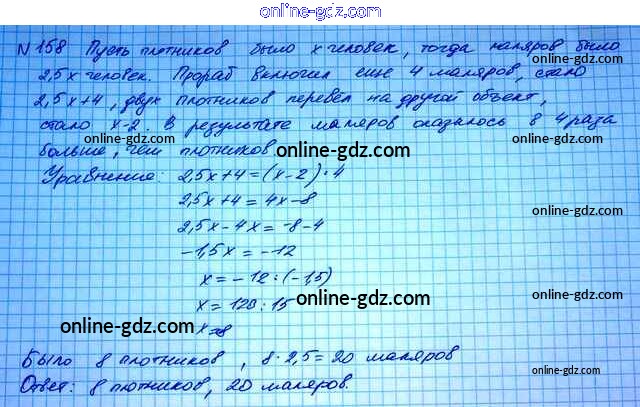 online-gdz.com
N 158 Пусть плотников было x человек, тогда маляров было
2,5x человек. Прораб включил еще 4 маляров, стало
2,5x+4, двух плотников перевёл на другой объект,
стало x-2. В результате маляров оказалось в 4 раза
больше, чем плотников. online-gdz.com
online-gdz.com
Уравнение: 2,5x+4=(x-2)·4
2,5x+4=4x-8
online-gdz.com
2,5x-4x=-8-4
-1,5x=-12
x=-12:(-1,5)
x=120:15 online-gdz.com
online-gdz.com
online-gdz.com
x=8
Было 8 плотников, 8·2,5=20 маляров
online-gdz.com
Ответ: 8 плотников, 20 маляров.